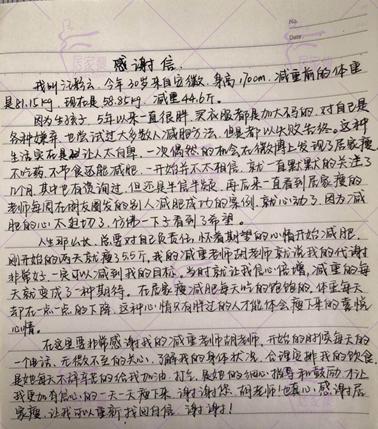 No.
Date.
感谢信.
我叫江彩云,今年30岁来自安徽,身高170cm,减重前的体重
是81.15kg,现在是58.85kg,减重44.6斤。
因为生孩子,5年以来一直很胖,买衣服都是加大码的,对自己是
各种嫌弃,也尝试过大多数人减肥方法,但是都以失败告终。这种
生活实在是让人太自卑,一次偶然的机会在微博上发现了居家瘦
不吃药,不节食还能减肥,一开始并不太相信,就一直默默的关注了
几个月,其中也有咨询过,但还是半信半疑,再后来一直看到居家瘦的
老师每周在朋友圈发的别人减肥成功的案例,就心动了,因为减
肥的心太迫切了,仿佛一下子看到了希望。
人生那么长,总要对自己负责任,怀着期望的心情开始减肥,
刚开始的两天就瘦了5.5斤,我的减重老师胡老师就说我的代谢
非常好,一定可以减到我的目标,当时就让我信心倍增,减重的每
天就变成了一种期待。在居家瘦减肥每天吃的饱饱的,体重每天
却在一点一点的下降,这种心情只有胖过的人才能体会瘦下来的喜悦
心情。
在这里要非常感谢我的减重老师胡老师,开始的时候每天的
一个电话,无微不至的关心,了解我的身体状况,合理安排我的饮食,
是她每天不辞辛苦的给我加油,打气,是她的细心指导和鼓励才让
我更加有信心的一天一天瘦下来,谢谢您,胡老师!也真心感谢居
家瘦,让我可以重新找回自信,谢谢!